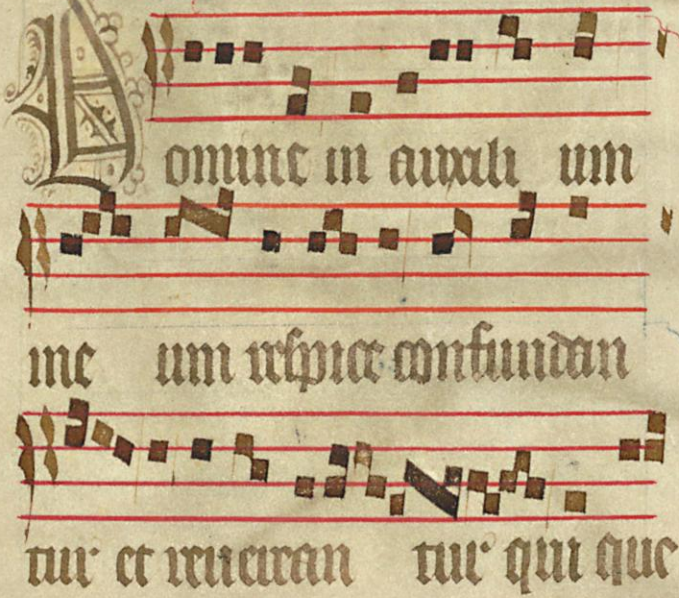 Domine in auxili um
me um respice confundan
tur et reuerean tur qui que